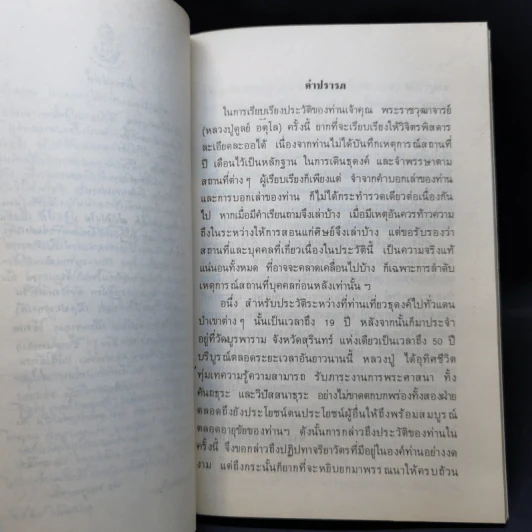 คำปรารภ
ในการเรียบเรียงประวัติของท่านเจ้าคุณ พระราชวุฒาจารย์
(หลวงปู่ดูลย์ อตุโล) ครั้งนี้ ยากที่จะเรียบเรียงให้วิจิตรพิสดาร
ละเอียดละออได้ เนื่องจากท่านไม่ได้บันทึกเหตุการณ์สถานที่
ปี เดือนไว้เป็นหลักฐาน ในการเดินธุดงค์ และจำพรรษาตาม
สถานที่ต่างๆ ผู้เรียบเรียงก็เพียงแต่ จำจากคำบอกเล่าของท่าน
และการบอกเล่าของท่าน ก็ไม่ได้กระทำรวดเดียวต่อเนื่องกัน
ไป หากเมื่อมีคำเรียนถามจึงเล่าบ้าง เมื่อมีเหตุอันควรท้าวความ
ถึงในระหว่างให้การสอนแก่ศิษย์จึงเล่าบ้าง แต่ขอรับรองว่า
สถานที่และบุคคลที่เกี่ยวเนื่องในประวัตินี้ เป็นความจริงแท้
แน่นอนทั้งหมด ที่อาจจะคลาดเคลื่อนไปบ้าง ก็เฉพาะการลำดับ
เหตุการณ์สถานที่บุคคลก่อนหลังเท่านั้น ฯ
อนึ่ง สำหรับประวัติระหว่างที่ท่านเที่ยวธุดงค์ไปทั่วแดน
ป่าเขาต่างๆ นั้นเป็นเวลาถึง 19 ปี หลังจากนั้นก็มาประจำ
อยู่ที่วัดบูรพาราม จังหวัดสุรินทร์ แห่งเดียวเป็นเวลาถึง 50 ปี
บริบูรณ์ตลอดระยะเวลาอันยาวนานนี้ หลวงปู่ ได้อุทิศชีวิต
ทุ่มเทความรู้ความสามารถ รับภาระงานการพระศาสนา ทั้ง
คันถธุระ และวิปัสสนาธุระ อย่างไม่ขาดตกบกพร่องทั้งสองฝ่าย
ตลอดถึงยังประโยชน์ตนประโยชน์ผู้อื่นให้ถึงพร้อมสมบูรณ์
ตลอดอายุขัยของท่านฯ ดังนั้นการกล่าวถึงประวัติของท่านใน
ครั้งนี้ จึงขอกล่าวถึงปฏิปทาจริยาวัตรที่มีอยู่ในองค์ท่านอย่างงด
งาม แต่ถึงกระนั้นก็ยากที่จะหยิบยกมาพรรณนาให้ครบถ้วน